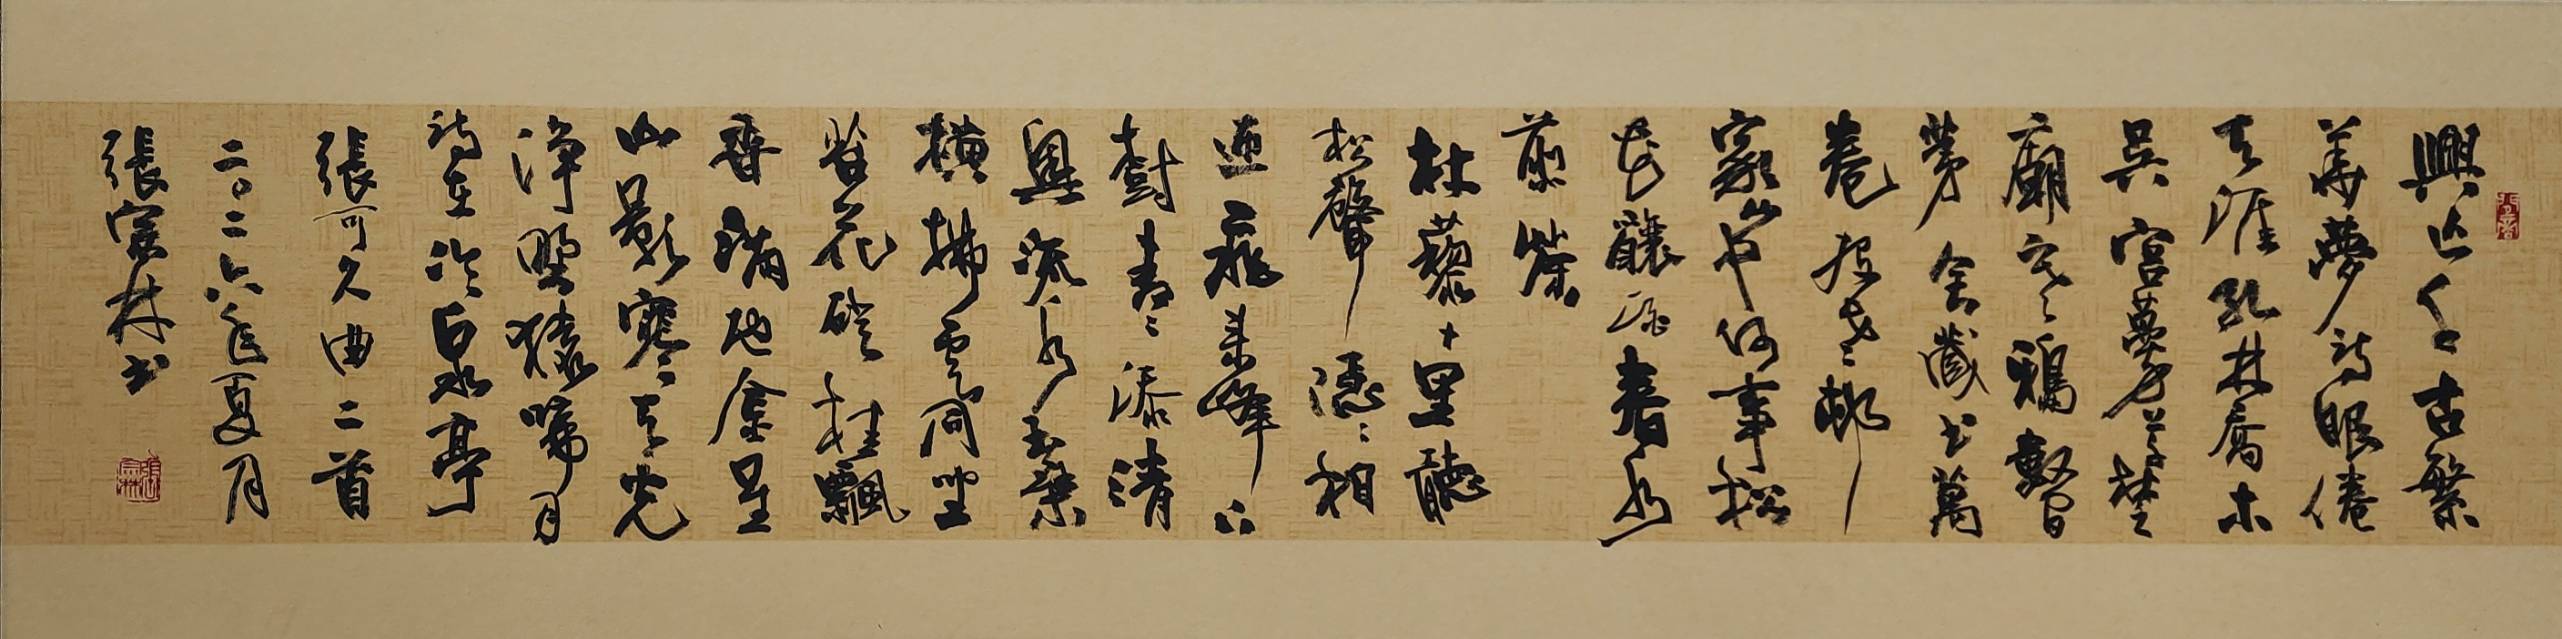 興亡千古繁
華夢詩眼倦
天涯孔林喬木
吳宮蔓草楚
廟寒鴉數間
茅舍藏書萬
卷投老邨
家山中何事松
花釀酒春水
煎茶
杖藜十里聽
松聲隱〻相
迎飛來峰下
樹青〻添清
興流水玉琴
橫拂雲同坐
苔花磴桂飄
香滿地金星
山影寒天光
淨野猿啼月
詩在冷泉亭
張可久曲二首
二〇二六年夏月
張富林書